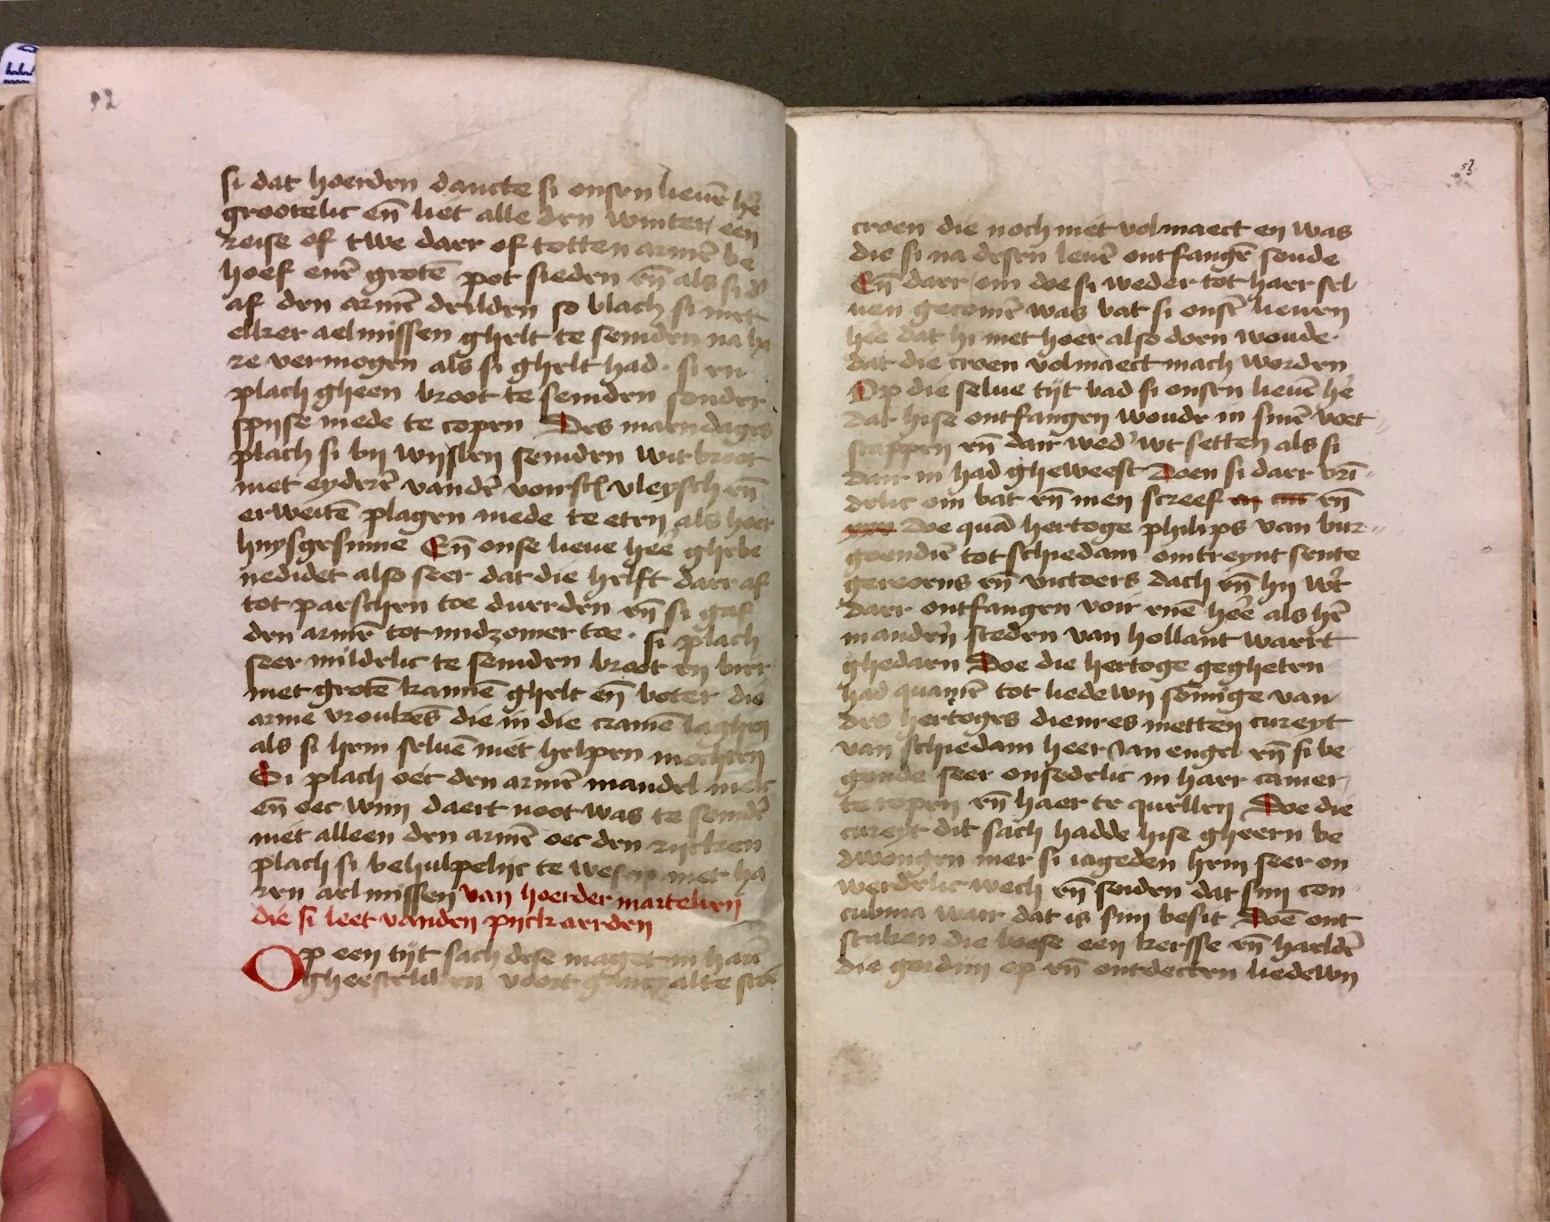 92
si dat hoerden dancte si onsen lieuē hē
grootelic en̄ liet alle den winter een
reise of twe daer of totten armē be
hoef enē grotē pot sieden en̄ als si dʼ
af den armē deilden so plach si met
elker aelmissen ghelt te seinden na ha
re vermogen als si ghelt had. si en
plach gheen broot te seinden sonder
spijse mede te copen Des maendages
plach si bij wijlen seinden wit broot
met eyderē vanden vleysch en̄
erweitē plagen mede te eten als hoer
huysgesinne En̄ onse lieue hēē ghebe
nedidet also seer dat die helft daer af
tot paeschen toe duerden en̄ si gaf
den armē tot midzomer toe. si plach
seer mildelic te seinden broot en bier
met grotē kannē ghelt en̄ boter die
arme vroukēs die in die cramē laghen
als si hem seluē niet helpen mochten
Si plach oec den armē mandel melc
en̄ oec wijn daert noot was te seindē
niet alleen den armē oec den rijcken
plach si behulpelijc te wesen met ha
ren aelmissen van hoerder martelien
die si leet vanden pijckaerden
Op een tijt sach dese maget in harē
gheesteliken voort alte scō
53
croen die noch niet volmaect en was
die si na desen leuē ontfangē soude
En̄ daer om doe si weder tot haer sel
uen gecomē was bat si onsē lieuen
hēē dat hi met hoer also doen woude.
dat die croen volmaect mach worden
Op die selue tijt bad si onsen lieuē hē
dat hise ontfangen woude in sinē voet
stappen en̄ dair wedʼ wt setten als si
dair in had gheweest Doen si daer vri
delic om bat en̄ men screef en̄
Doe quā hertoge philips van bur
goendiē tot schiedam omtreynt sente
gereoens en̄ victoers dach en̄ hij wt
daer ontfangen voir enē hēē als hē
in anderē steden van hollant waert
ghedaen Doe die hertoge gegheten
had quamē tot liedewij sōmige van
des hertoges dienres metten cureyt
van schiedam heer Jan engel en̄ si be
gonde seer onsedelic in haer camer
te copen en̄ haer te quellen Doe die
cureyt dit sach hadde hise gheern be
dwongen mer si iageden hem seer on
werdelic wech en̄ seiden dat sijn con
cubina waer dat is sijn besit Doē ont
staken die boese een kersse en̄ haeldē
die gordijn op en̄ ontdecten liedewij